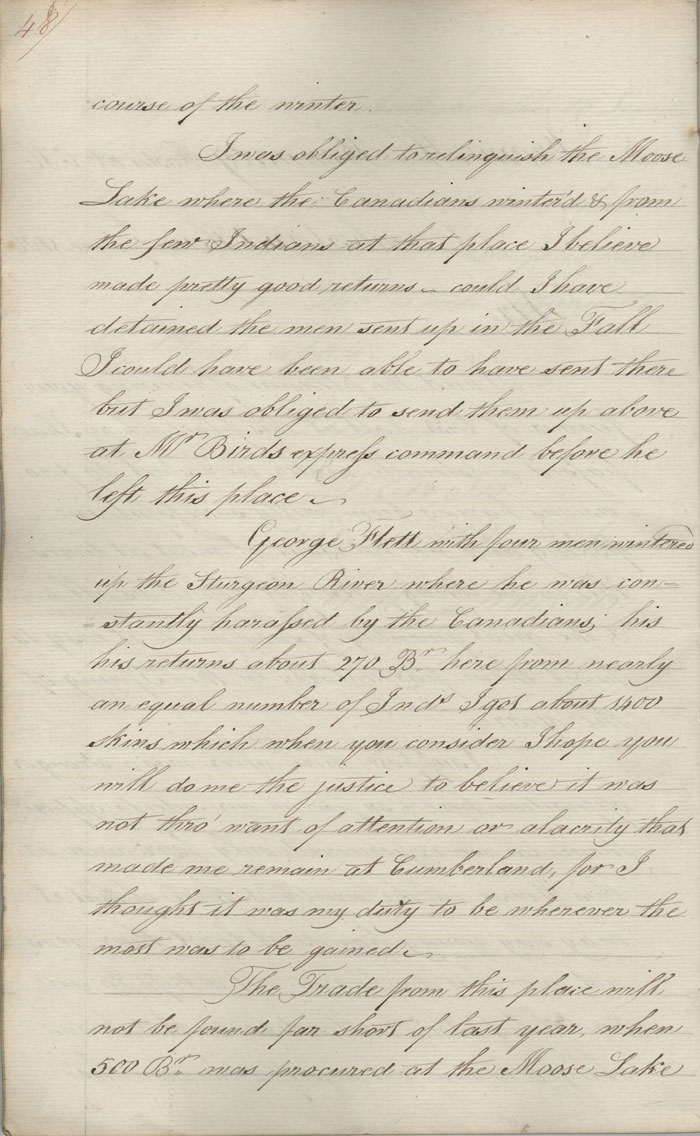 48
course of the winter.
I was obliged to relinquish the Moose
Lake where the Canadians winter'd & from
the few Indians at that place I believe
made pretty good returns – could I have
detained the men sent up in the Fall
I could have been able to have sent there
but I was obliged to send them up above
at Mr Birds express command before he
left this place –
George Flett with four men wintered
up the Sturgeon River where he was con=
=stantly harassed by the Canadians; his
his returns about 270 Br. here from nearly
an equal number of Inds I got about 1400
skins which when you consider I hope you
will do me the justice to believe it was
not thro' want of attention or alacrity that
made me remain at Cumberland, for I
thought it was my duty to be wherever the
most was to be gained –
The Trade from this place will
not be found far short of last year, when
500 Br. was procured at the Moose Lake